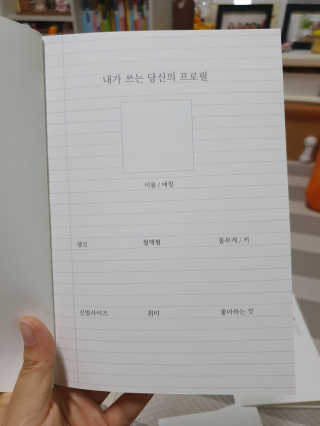 내가 쓰는 당신의 프로필
이름 / 애칭
생신 혈액형 몸무게 / 키
신발사이즈 취미 좋아하는 것